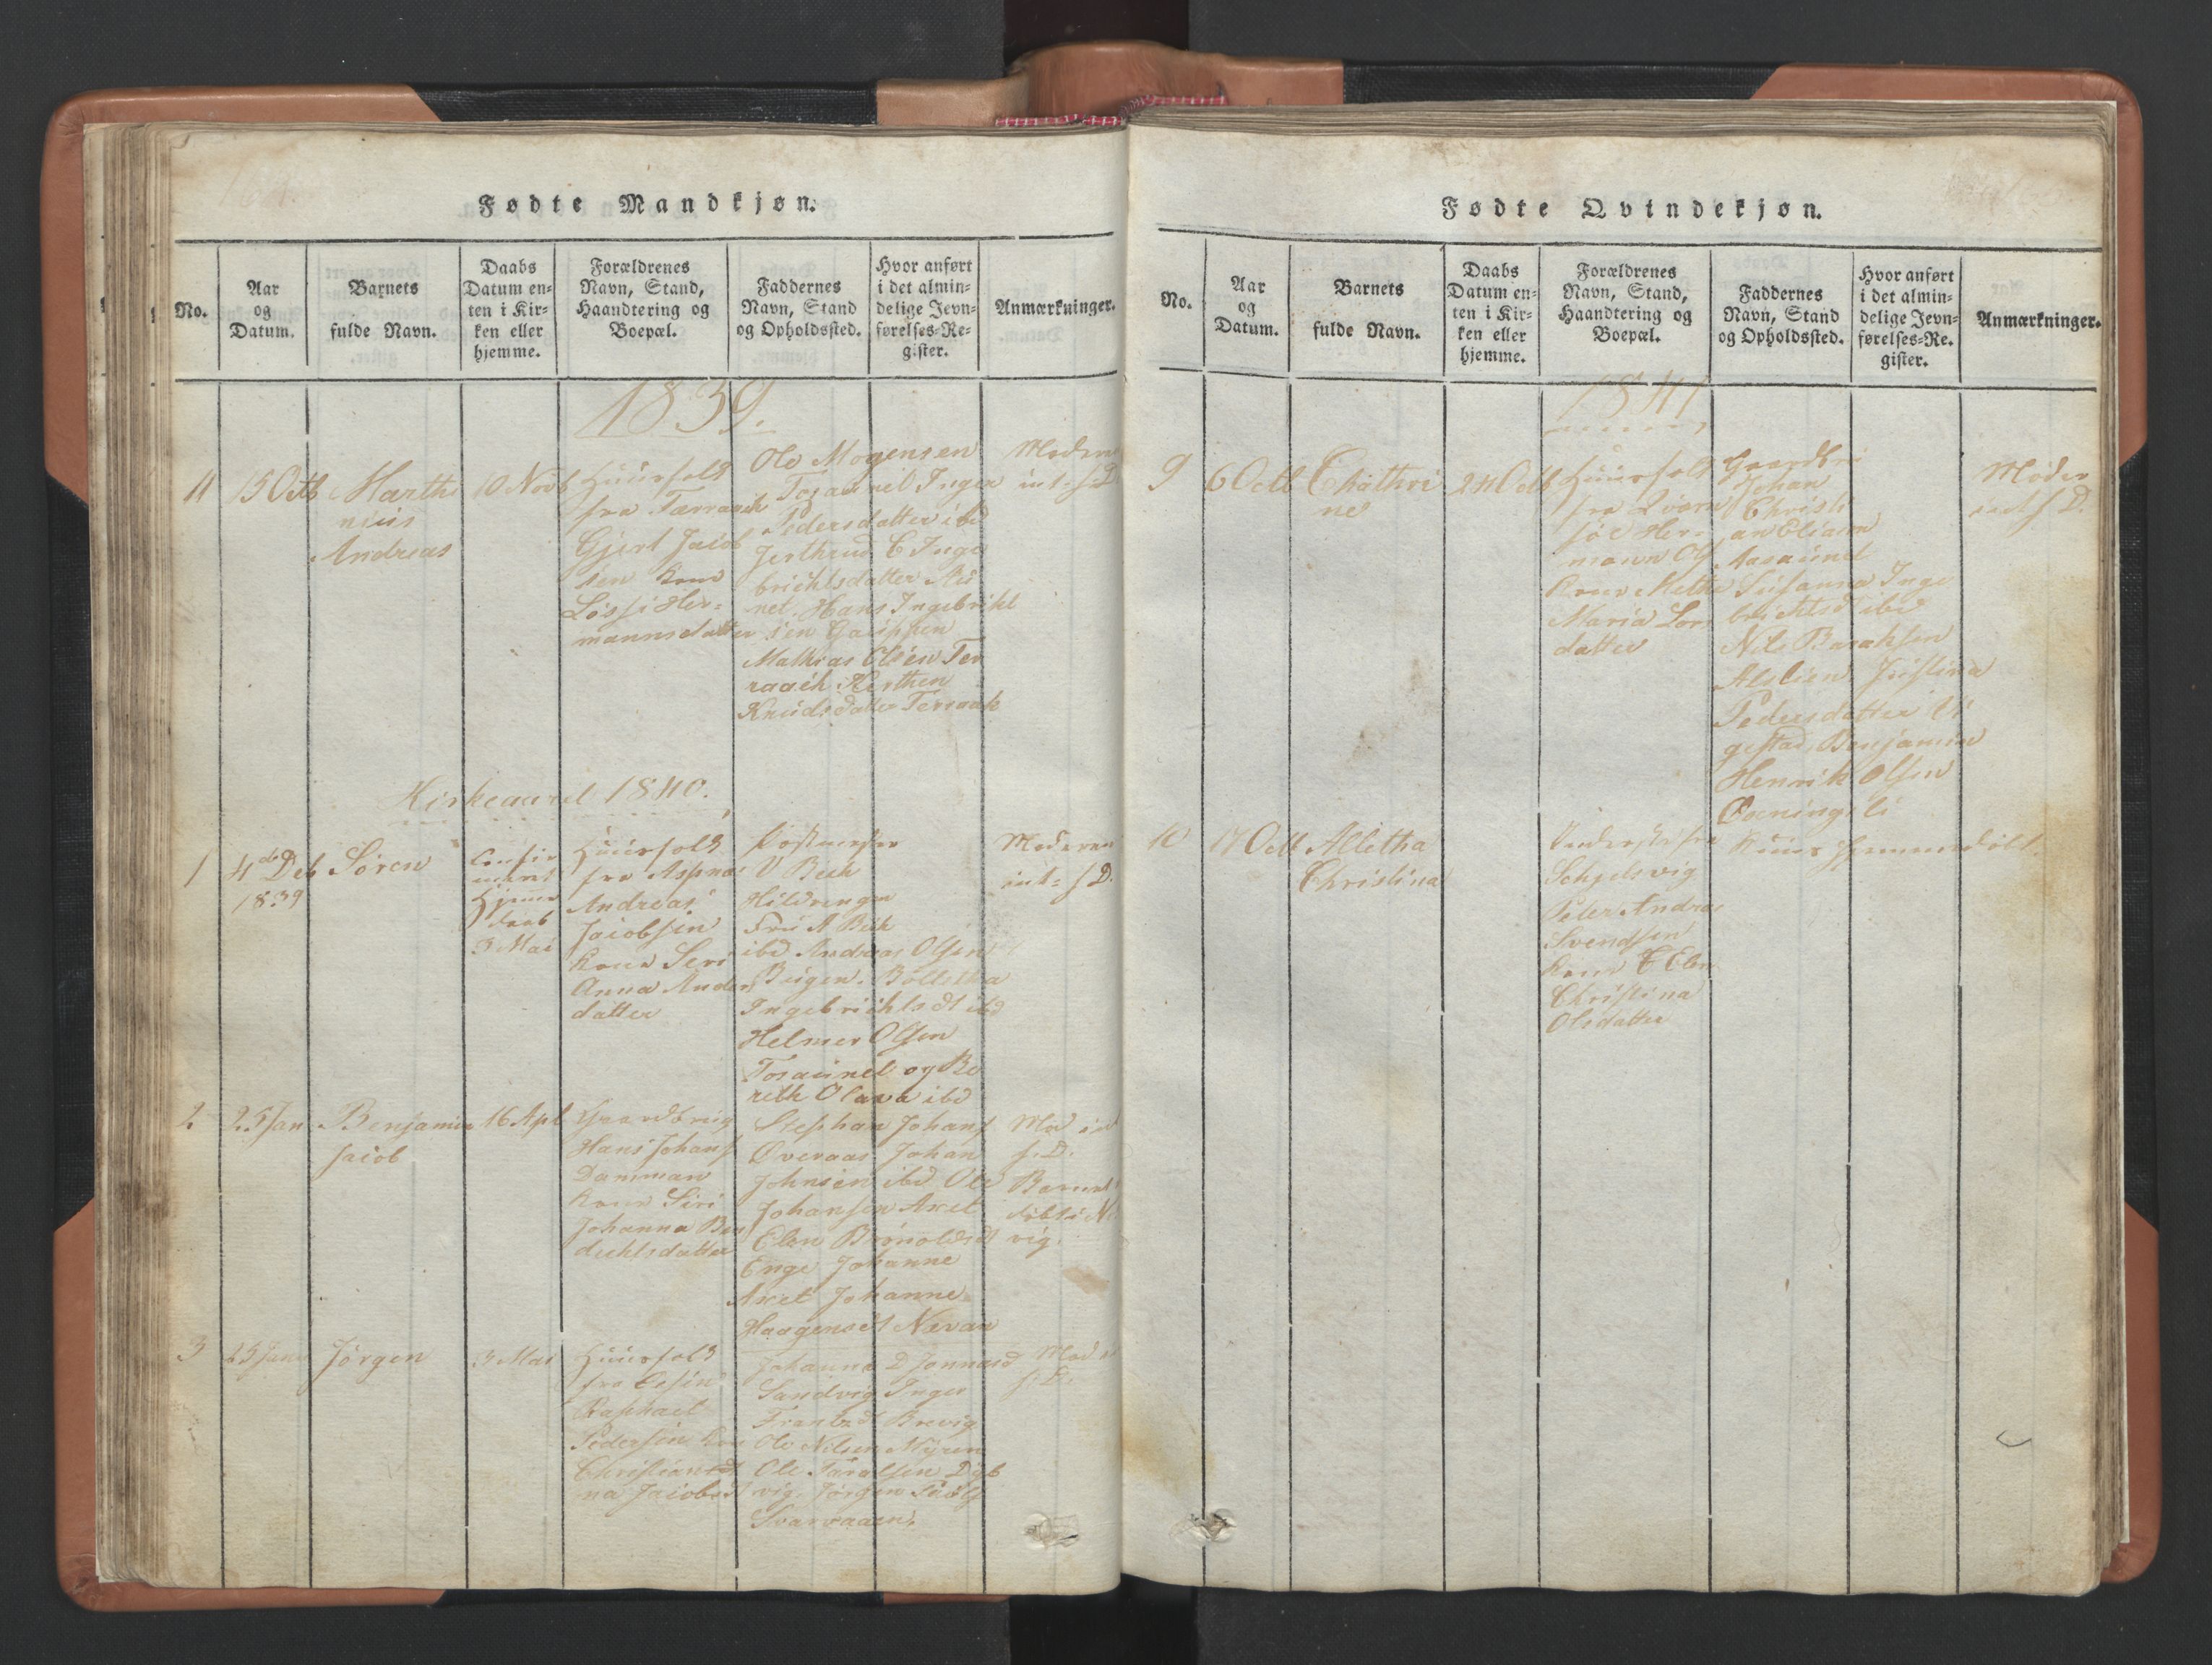 Fødte Mandkjøn.
No.
Aar
og
Datum.
Barnets
fulde Navn.
Daabs
Datum en-
ten i Kir-
ken eller
hjemme.
Forældrenes
Navn, Stand,
Haandtering og
Boepæl.
Faddernes
Navn, Stand
og Opholdssted.
Hvor anført
i det almin-
delige Jevn-
førelses-Re-
gister.
Anmærkninger.
1839.
11
15 Octb
Marthi
nius
Andreas
10 Novb
Huusfolk
fra Terraach
Gjert Jacob
sen Kone
Lossi Her-
mannsdatter
Ole Mogensen
Tosaunet Inger
Pedersdatter ibd
Jerthrud C Inge
brichtsdatter
net. Hans Ingebrikt
sen
Mathias Olsen Ter
raach. Kerthen
Knudsdatter Teraak
Moderen
int. f D
Kirkeaaret 1840.
1
4de Deb
1839
Søren
Confir
meret
Hjemme
daab
3 Mai
Huusfolk
fra Aspnes
Andreas
Jacobsen
Kone Seri
Anna Anders
datter
Postmester
V Bech
Hildringen
Fru A Bech
ibd Andreas Olsen
Bugen. Bolletha
Ingebrichtsdt ibd
Helmer Olsen
Tosaunet og Be
reth Olava ibd
Moderen
int. f D.
2
25 Jan
Benjamin
Jacob
16 Apl
Gaardbrug
Hans Johans
Damman
Kone Siri
Johanna Ben
dichtsdatter
Stephan Johans
Overaas Johan
Johnsen ibd Ole
Johansen Axet
Elen Brynoldsdt
Enge Johanne
Axet Johanne
Haagensdt Nevan
Mod in
f. D.
Barnet
døbt i
vig.
3
25 Janu
Jørgen
3 Mai
Huusfolk
fra
Raphael
Pedersen Kone
Christian
na Jacobsd
Johanna D Jonnasd
Sandvig Inger
Frantzdt Brevig
Ole Nilsen Myren
Ole
vig. Jørgen
Svarvaaen.
Mod.
f. D.
Fødte Qvindekjøn.
No.
Aar
og
Datum.
Barnets
fulde Navn.
Daabs
Datum en-
ten i Kir-
ken eller
hjemme.
Forældrenes
Navn, Stand,
Haandtering og
Boepæl.
Faddernes
Navn, Stand
og Opholdssted.
Hvor anført
i det almin-
delige Jevn-
førelses-Re-
gister.
Anmærkninger.
1841
9
6 Octb
Chathri
ne
24 Octb
Huusfolk
fra
Her-
mann Ols
Kone Methe
Maria Lars
datter
Gaardbr
Johan
Christi
an Eliasen
Aasaunet
Susanna Inge
brichtsd ibd
Nils Barahsen
Alslien Justina
Pedersdatter
gestad. Benjamin
Henrik Olsen
li
Moder
int f D.
10
17 Octb
Alletha
Christina
fra
Schjelsvig
Peter Andreas
Svendsen
Kone E Elen
Christina
Olsdatter
hjemmedøbt.